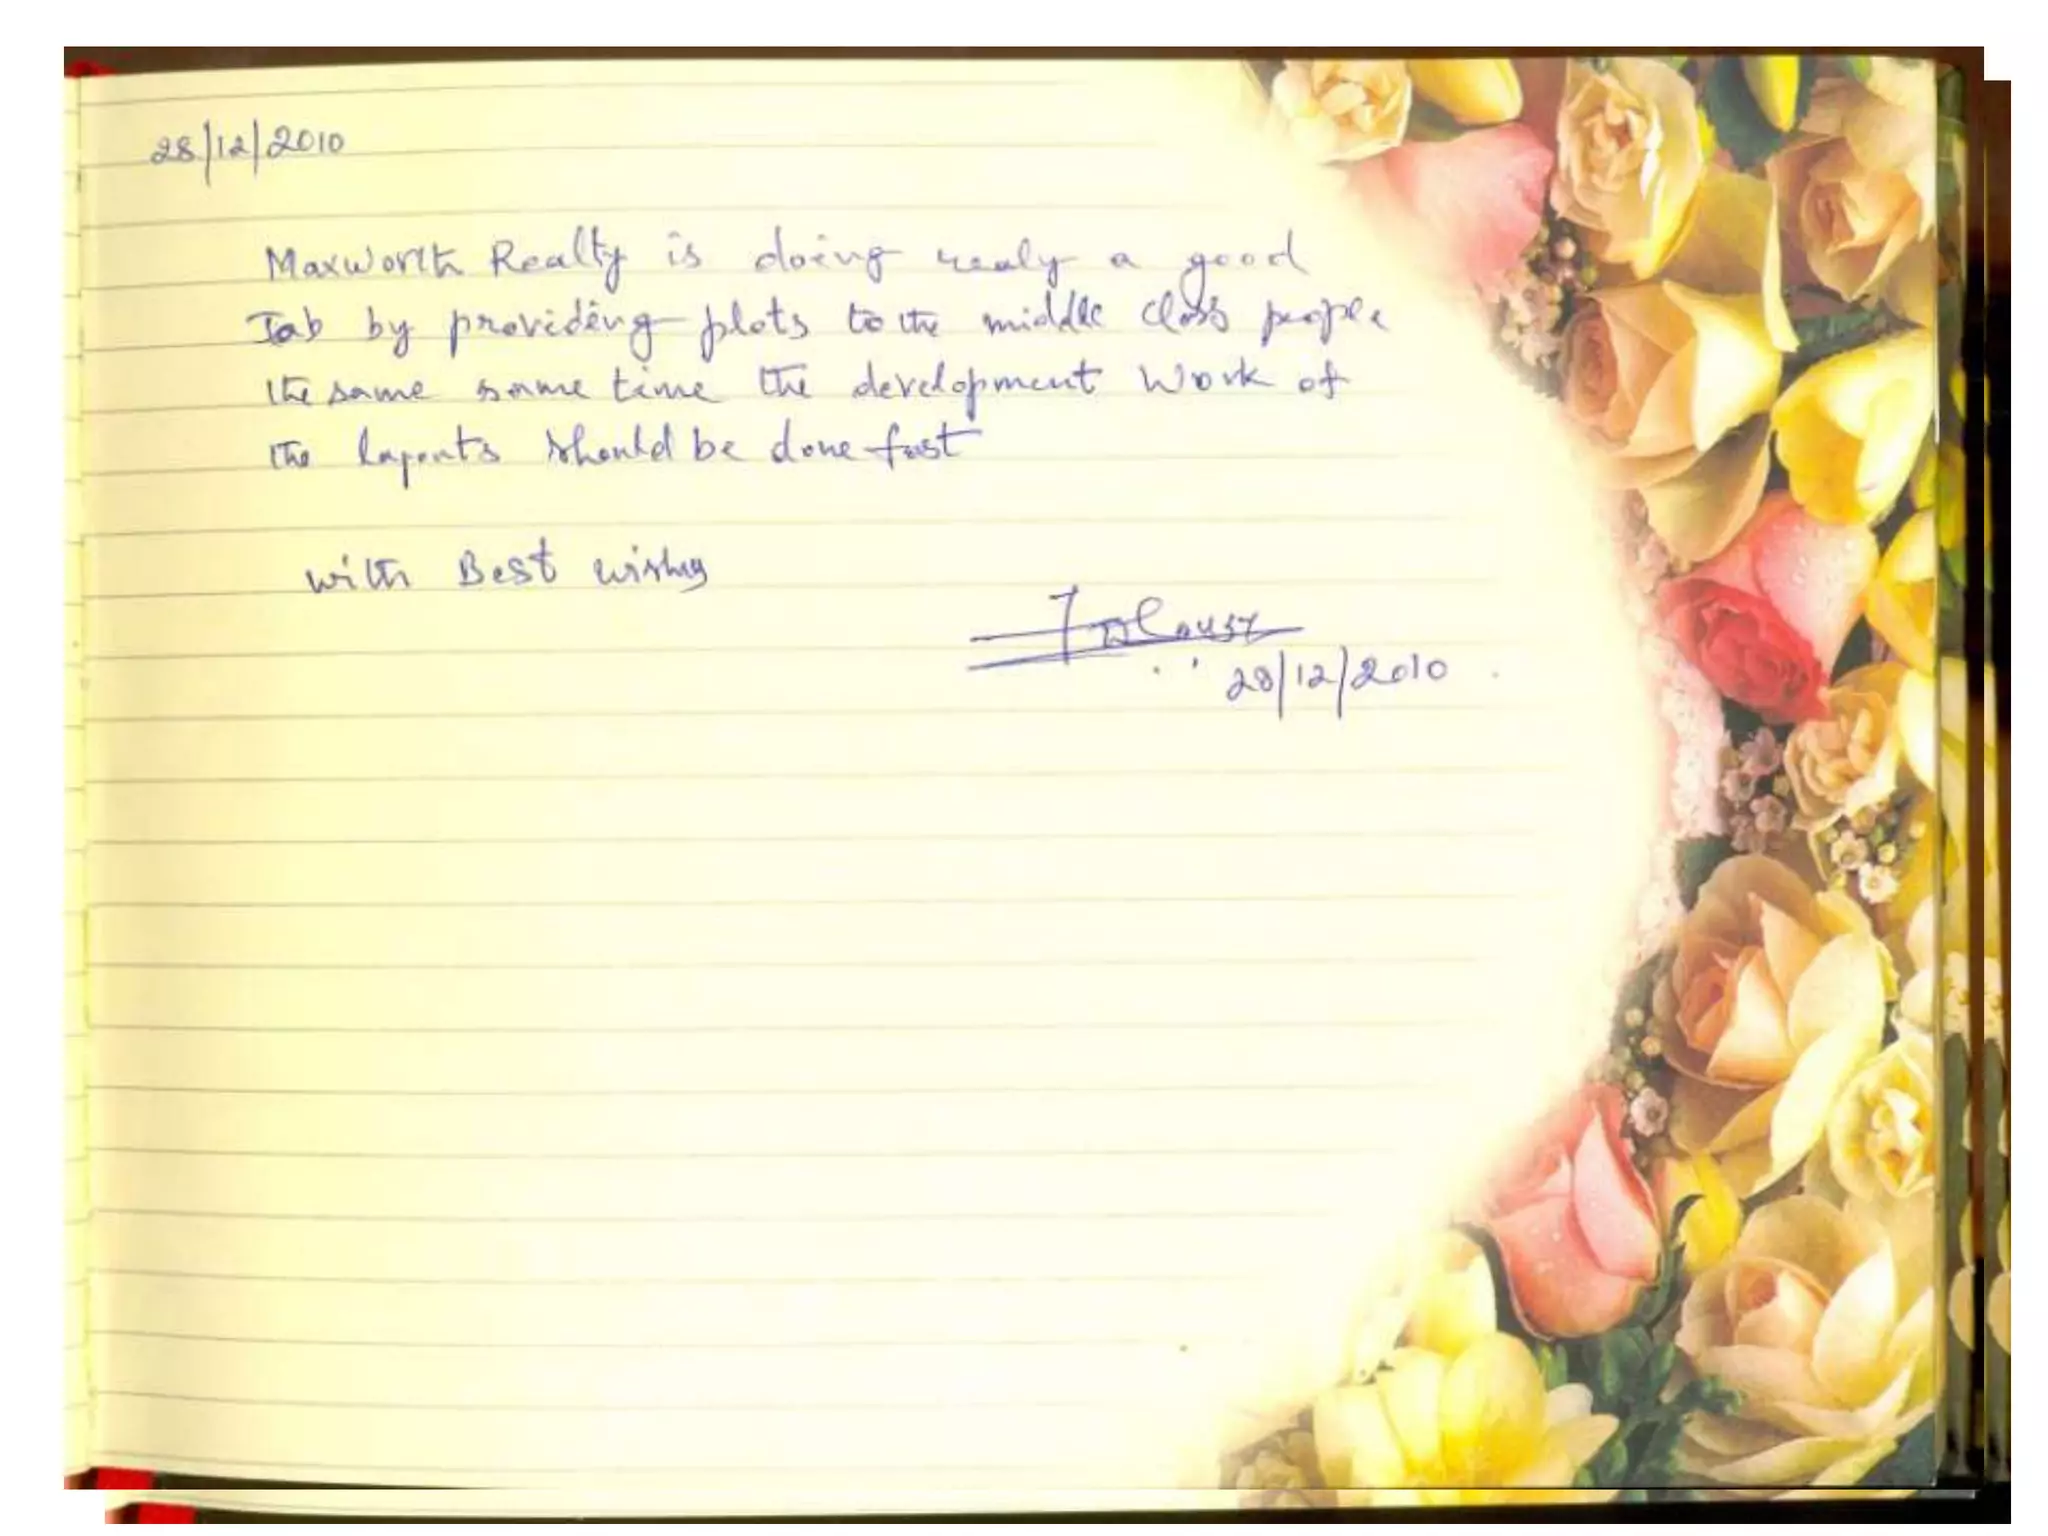 28/12/2010
Maxworth Realty is doing realy a good
Job by providing plots to the middle class people
the same same time the development Work of
the layouts should be done fast
with Best wishes
28/12/2010